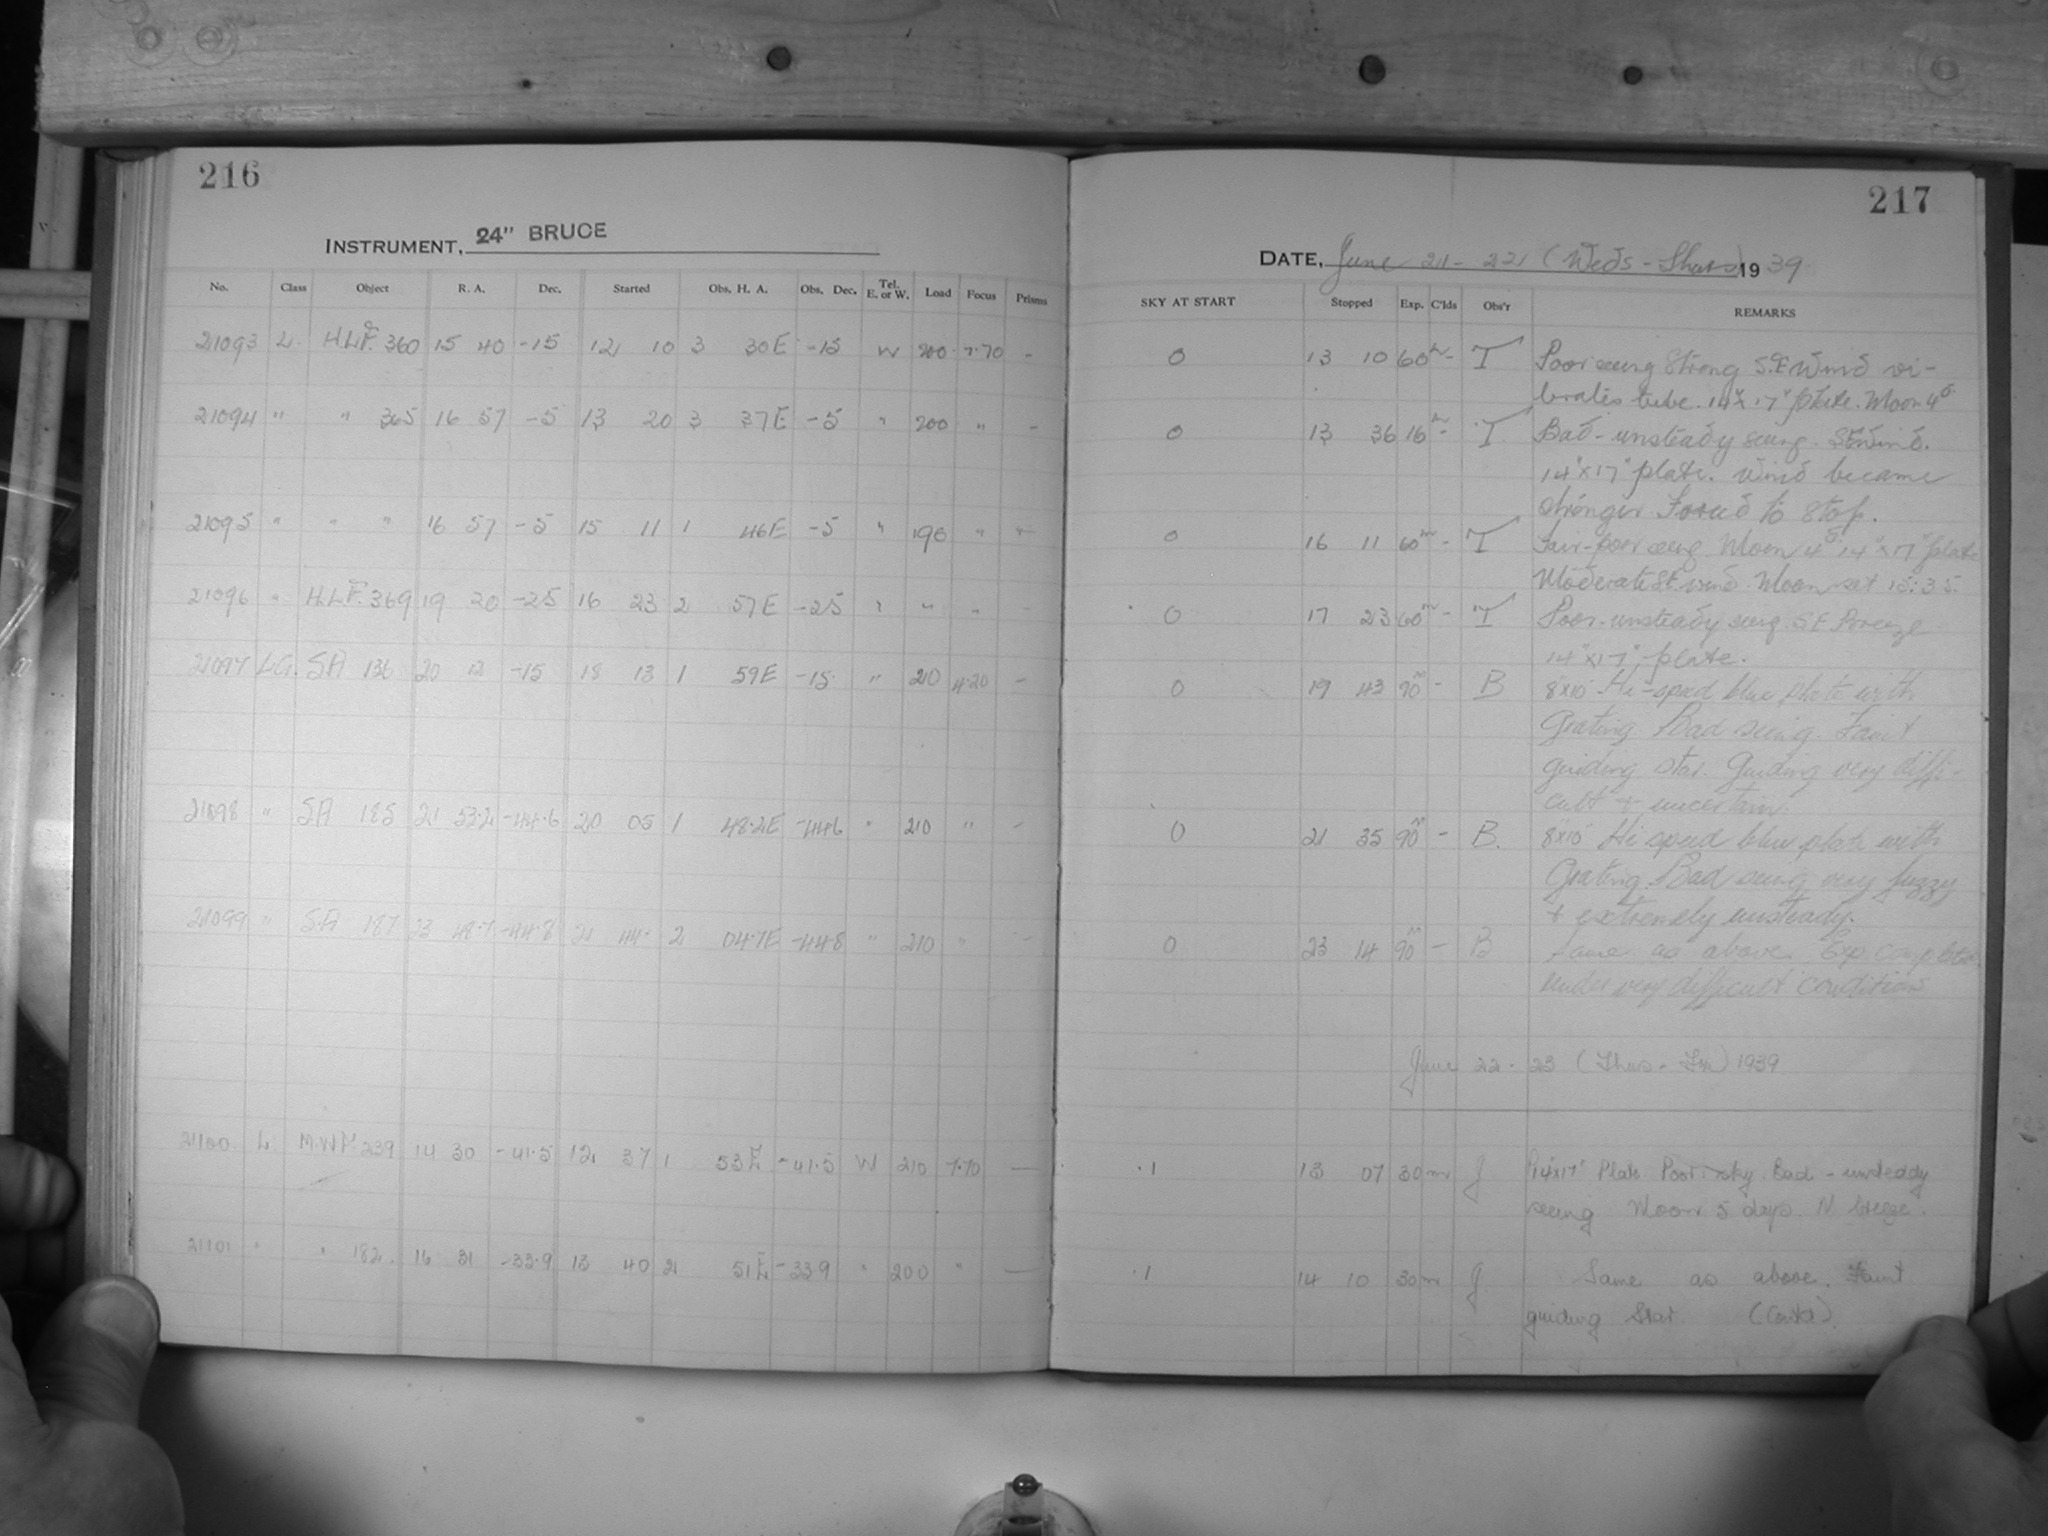 216
INSTRUMENT, 24" BRUCE
No. Class Object R. A. Dec. Started Obs. H. A. Obs. Dec. Tel. E. or W. Load Focus Prisms
21093 L. 360 15 40 -15 12 10 3 30E -15 W 200 7.70 -
21094 " " 365 16 57 -5 13 20 3 37E -5 " 200 " -
21095 " " " 16 57 -5 15 11 1 46E -5 " 190 " -
21096 " 369 19 20 -25 16 23 2 57E -25 " " " -
21097 LG. SA 136 20 12 -15 18 13 1 59E -15 " 210 4.20 -
21098 " SA 185 21 53.2 -44.6 20 05 1 48.2E -44.6 " 210 " -
21099 " SA 187 23 48.7 -44.8 21 44 2 04.7E -44.8 " 210 " -
21100 L. M.W.F. 239 14 30 -41.5 12 37 1 53E -41.5 W 210 7.70 —
21101 " " 182. 16 31 -33.9 13 40 2 51E -33.9 " 200 " —
217
DATE, June 21-22 (Weds-Thurs) 1939
SKY AT START Stopped Exp. C'lds Obs'r REMARKS
0 13 10 60m - T Poor seeing Strong S.E Wind vi-
brates tube. 14"x17" plate. Moon 4d.
0 13 36 16m - T Bad-unsteady seeing. SE Wind.
14"x17" plate. Wind became
stronger Forced to stop.
0 16 11 60m - T Fair-poor seeing. Moon 4d. 14"x17" plate
Moderate SE wind. Moon set 15:35.
0 17 23 60m - T Poor-unsteady seeing. SE Breeze
14"x17" plate.
0 19 43 90m - B 8"x10" Hi-speed blue plate with
Grating. Bad seeing. Faint
guiding star. Guiding very diffi-
cult + uncertain.
0 21 35 90m - B. 8"x10" Hi speed blue plate with
Grating. Bad seeing very fuzzy
+ extremely unsteady.
0 23 14 90m - B Same as above. Exp. completed
under very difficult condition
June 22-23 (Thurs-Fri) 1939
.1 13 07 30m J 14"x17" Plate. Poor sky. Bad-unsteady
seeing Moon 5 days. N breeze.
.1 14 10 30m J Same as above. Faint
guiding Star. (Contd).